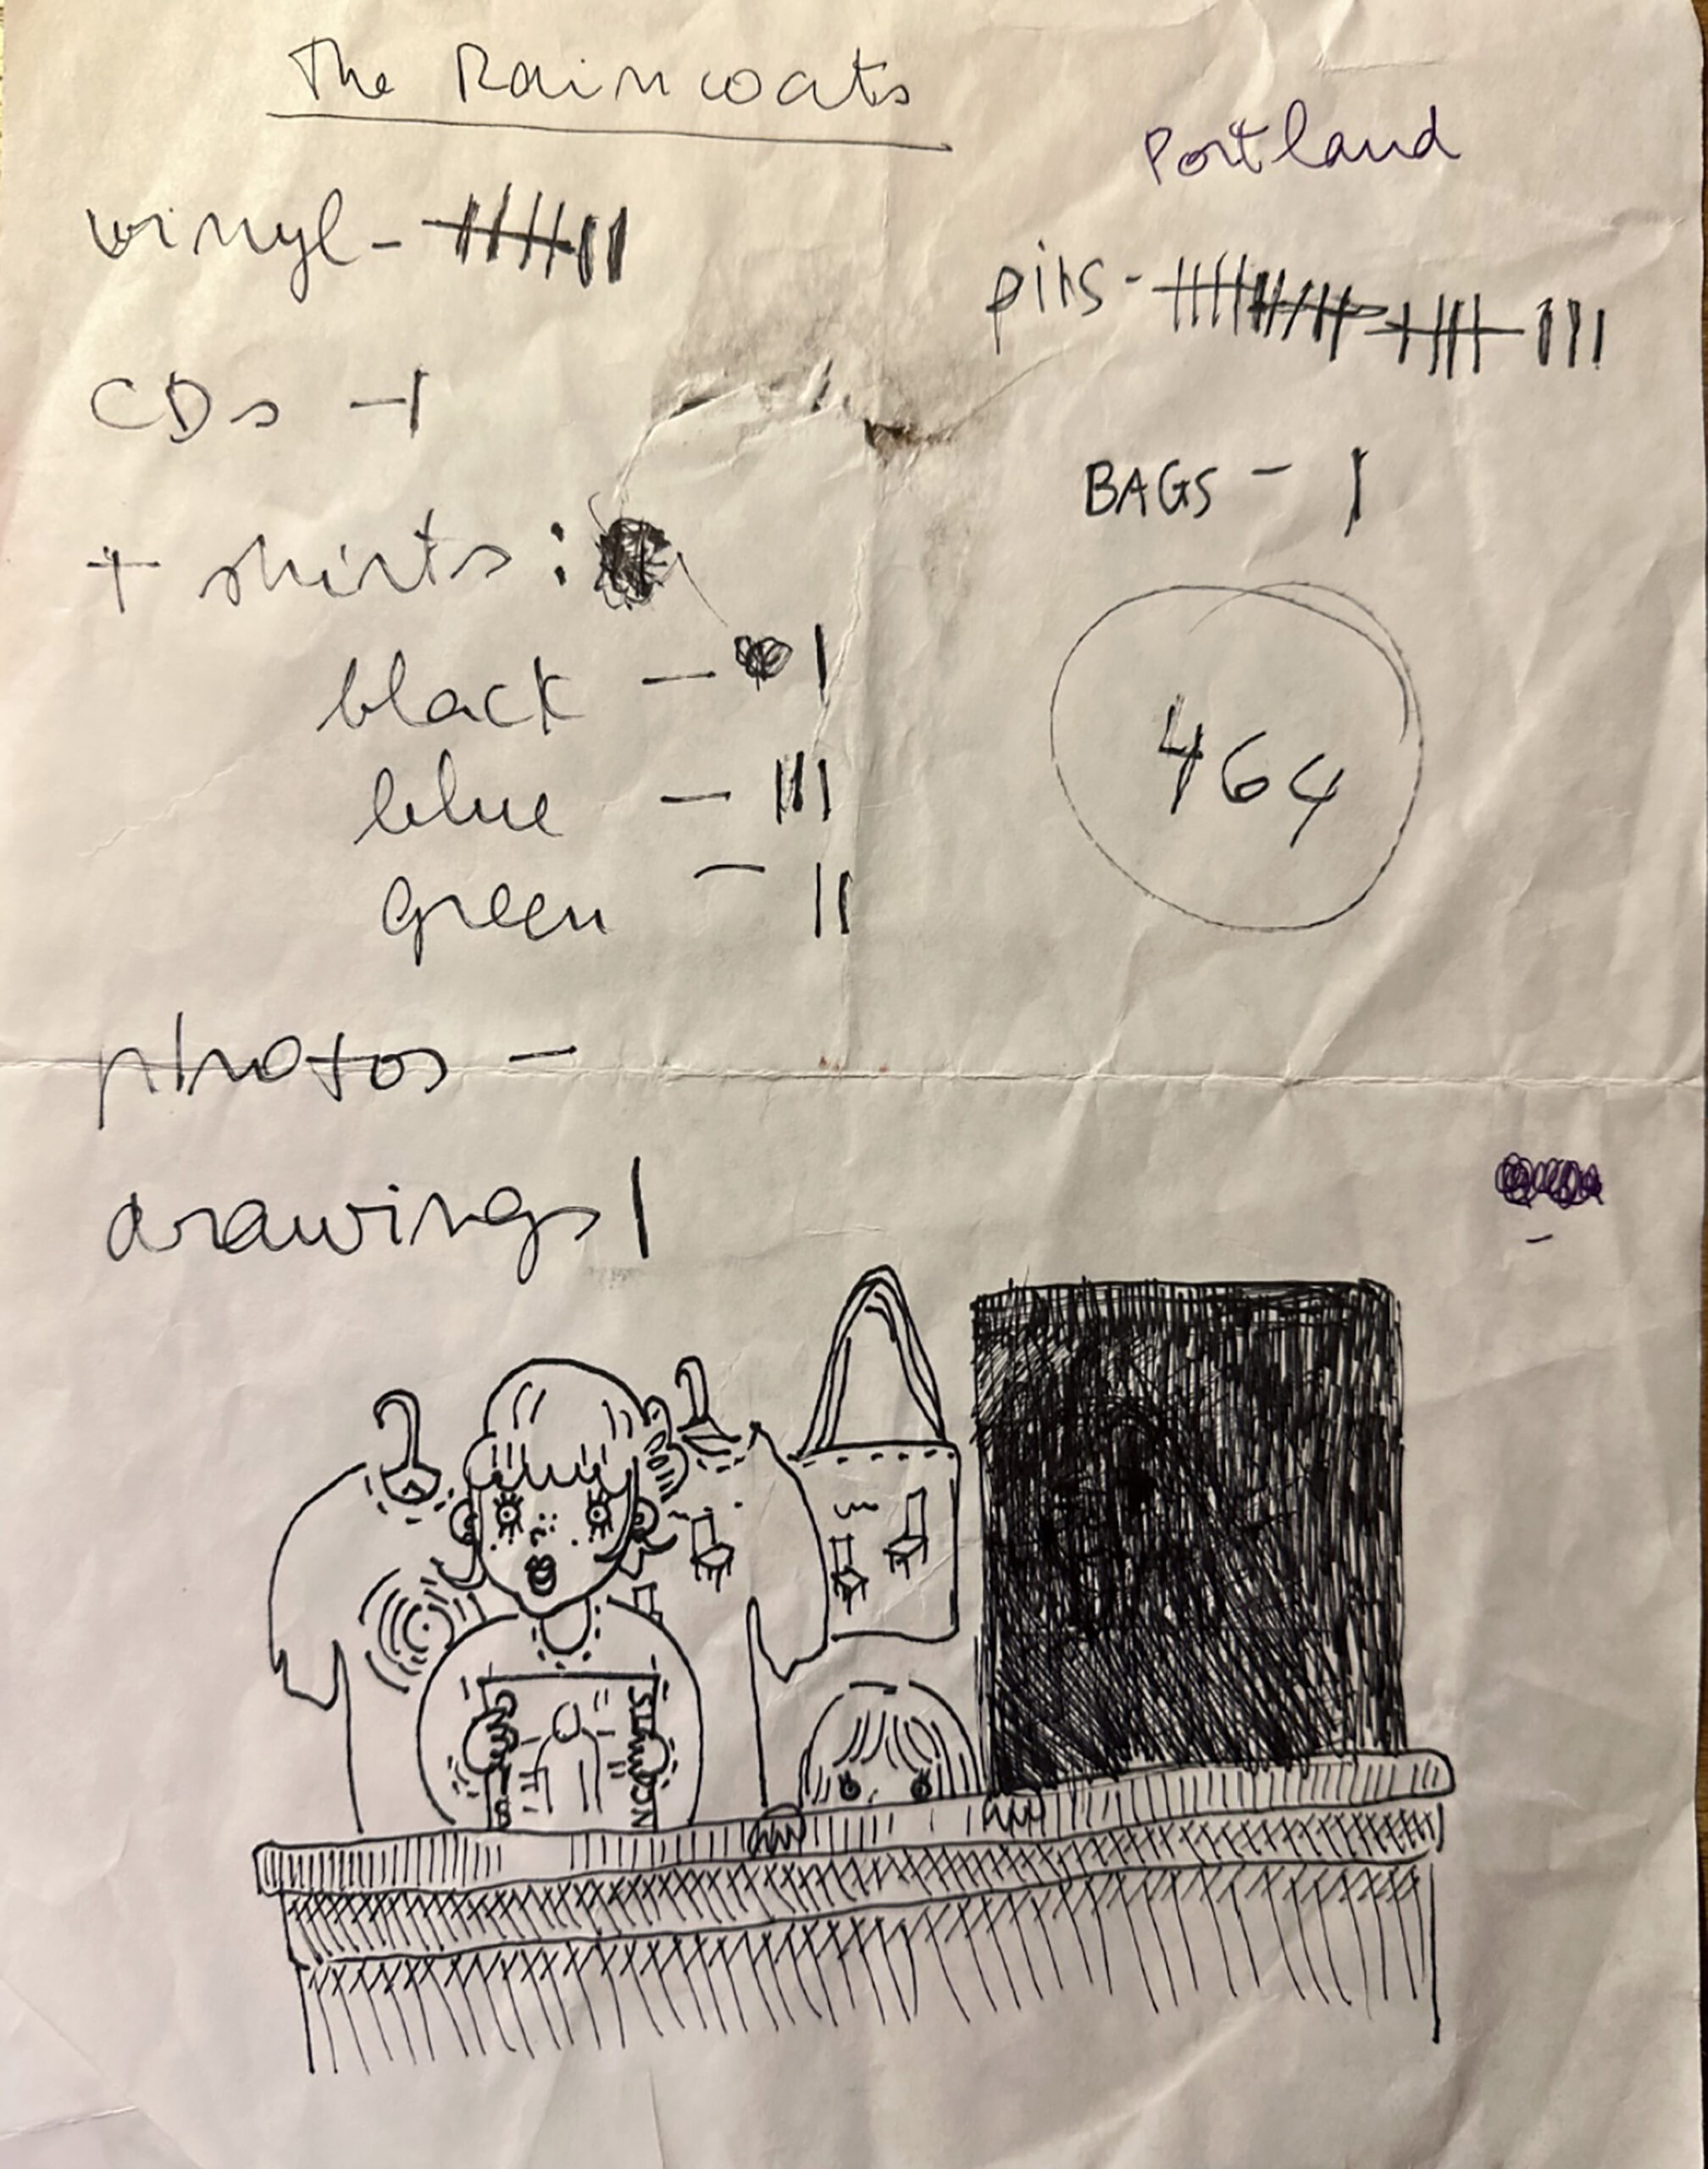 The Raincoats
Portland
vinyl -
pins -
CDs -
BAGS -
t shirts :
black -
blue -
green -
464
photos -
drawings